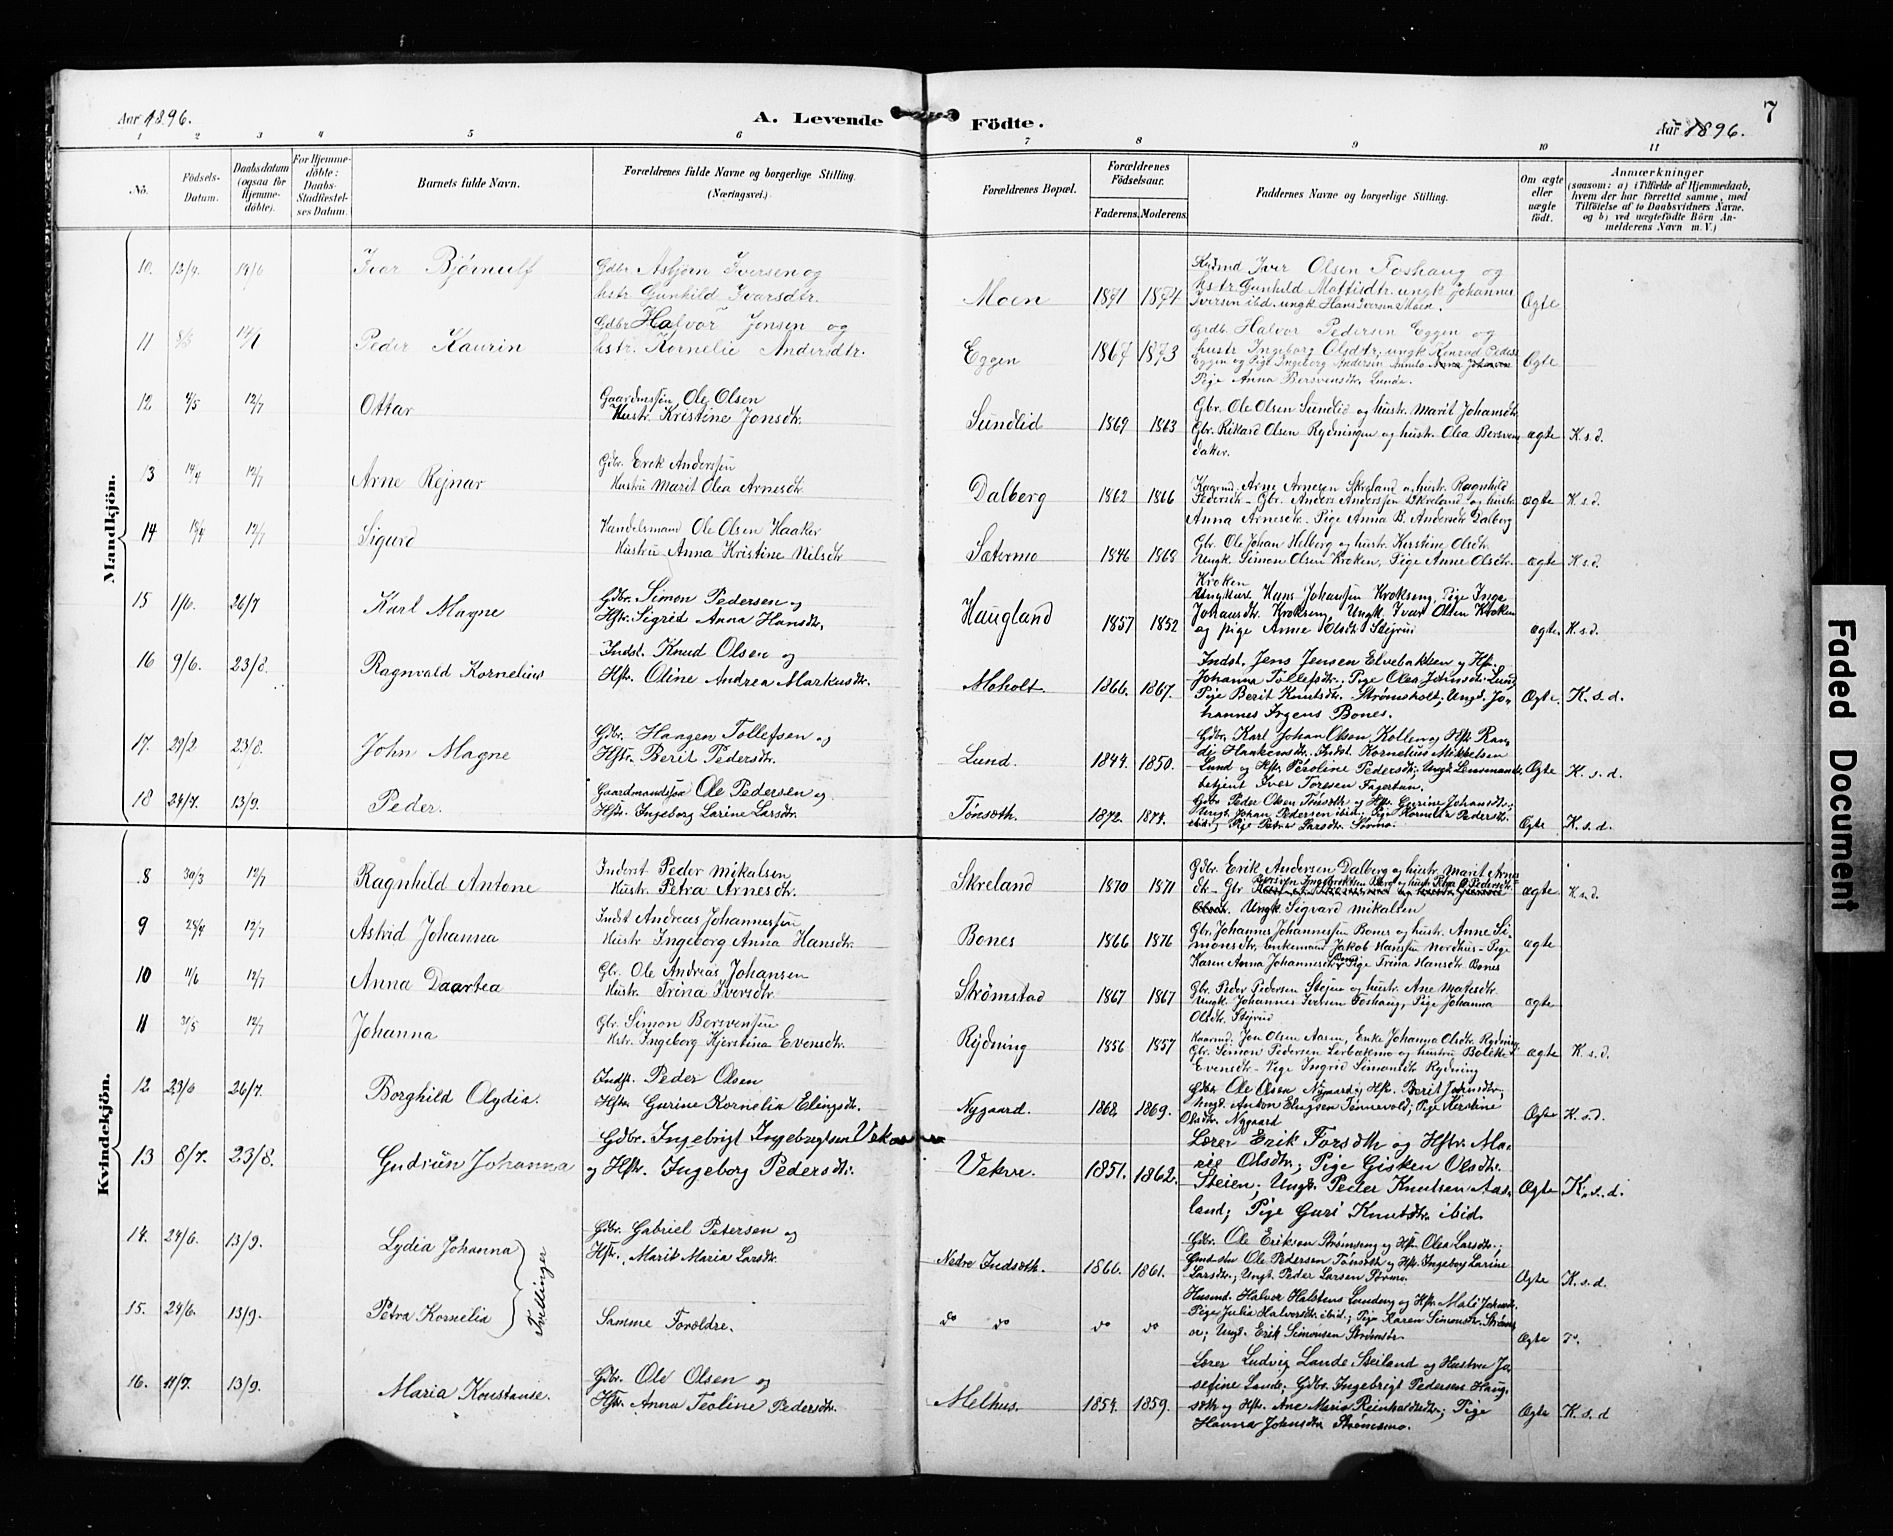 Aar 1896.
A. Levende Födte.
Aar 1896.
7
1 2 3 4 5 6 7 8 9 10 11
No.
Födsels-Datum.
Daabsdatum (ogsaa for Hjemme-döbte).
For Hjemme-döbte: Daabs-Stadfæstel-ses Datum.
Barnets fulde Navn.
Forældrenes fulde Navne og borgerlige Stilling. (Næringsvei.)
Forældrenes Bopæl.
Forældrenes Födselsaar.
Faderens. Moderens.
Faddernes Navne og borgerlige Stilling.
Om ægte eller uægte födt.
Anmærkninger
(saasom: a) i Tilfælde af Hjemmedaab,
hvem der har forrettet samme, med
Tilföielse af to Daabsvidners Navne.
og b) ved uægtefödte Börn An-
melderens Navn m. V.)
Mandkjön.
10. Ivar Bjørnulf Gdbr. Asbjørn Iversen og
hstr. Gunhild Ivarsdtr. Moen 1871 1874 Ægte
Kaarmd Iver Olsen Foshaug og
hstr Gunhild Mattisdtr. ungk Johannes
Iversen ibd. ungk Hans Iversen Moen.
11 Peder Kaurin Gdbr Halvor Jonsen og
hstr. Kornelie Andersdtr. Eggen 1867 1873 Ægte
Grdb. Halvor Pedersen Eggen og
hustr Ingeborg Olsdtr. ungk Konrad Peders
Eggen og Pige Ingeborg Andersen
Pige Anna Bersvensdtr. Lunde.
12 4/5 12/7 Ottar Gaardmssøn Ole Olsen
Hustr. Kristine Jonsdtr. Sundlid 1869 1863 ægte K.s.d.
Gbr. Ole Olsen Sundlid og hustr. Marit Johansdtr.
Gbr. Rikard Olsen Rydningen og hustr. Olea Bersven
daker.
13 14/4 12/7 Arne Rejnar Gdbr. Erik Anderssen
Hustru Marit Olea Arnesdtr. Dalberg 1862 1866 ægte K.s.d.
Kaarmd. Arne Arnesen Skreland og hustr. Ragnhild
Pedersdtr - Gbr. Anders Anderssen Skreland og hustr.
Anna Arnesdtr - Pige Anna B. Andersdtr Dalberg
14 12/7 Sigurd Handelsmand Ole Olsen Haaker
Hustru Anna Kristine Nilsdtr Sætermo 1846 1868 ægte K.s.d.
Gbr. Ole Johan Helberg og hustr. Kirstine Olsdtr.
Ungk. Simon Olsen Kroken, Pige Anne Olsdtr.
Kroken
15 1/6. 26/7 Karl Magne Gdbr. Simon Pedersen og
Hstr. Sigrid Anna Hansdtr. Haugland 1857 1852 ægte. K.s.d.
Ungkarl Hans Johansen Krokseng, Pige Inga
Johansdtr. Krokseng, Ungk. Ivar Olsen Kroken
og pige Anne Olsdtr Stejrud
16 9/6. 23/8. Ragnvald Kornelius Indst. Knud Olsen og
Hstr. Oline Andrea Markusdtr. Moholt 1866. 1867. Ægte. K.s.d.
Indst. Jens Jensen Elvebakken og Hstr.
Johanna Tollefsdtr; Pige Olea Johnsdtr Lund,
Pige Berit Knutsdtr. Strømsholt, Ungk. Jo-
hannes Irgens Bones.
17. 29/2 23/8. John Magne Gdbr. Haagen Tollefsen og
Hstr. Berit Pedersdtr. Lund. 1844. 1850. Ægte K.s.d.
Gdbr. Karl Johan Olsen Kollen og Hstr Ran-
di Haakensdtr. Indst. Kornelius Mikkelsen
Lund og Hstr. Peroline Pedersdtr; Ungk. Lensmands
betjent Iver Toresen Fagertun.
18 24/7. 13/9. Peder. Gaardmandssøn Ole Pedersen og
Hstr. Ingeborg Larine Larsdtr. Tønsæth. 1872. 1874. Ægte K.s.d.
Gdbr Peder Olsen Tønsæth og Hstr. Gurine Johansdtr;
Ungk. Johan Pedersen ibid; Pige Kornelia Pedersdtr.
ibid; Pige Petra Larsdtr. Sørmo.
Kvindekjön.
8 30/3 12/7 Ragnhild Antone Inderst Peder Mikalsen
Hustr. Petra Arnesdtr. Skreland 1870 1871 ægte K.s.d.
Gdbr. Erik Andersen Dalberg og hustr. Marit Arnes
dtr - Gbr Bersven Ingebrektsen Berg og hustr.
Ungk. Sigvard Mikalsen
9 25/4 12/7 Astrid Johanna Indst Andreas Johannessen
Hustr. Ingeborg Anna Hansdtr. Bones 1866 1876 ægte
Gbr. Johannes Johannessen Bones og hustr. Anne Si-
monsdtr. Enkemand Jakob Hanssen Nordhus - Pige
Karen Anna Johannesdtr Bones, Pige Trina Hansdtr. Bones
10 11/6 12/7 Anna Daartea Gbr. Ole Andreas Johansen
Hustr. Trina Iversdtr. Strømstad 1867 1867 ægte
Gbr. Peder Pedersen Stejen og hustr. Ane Matesdtr.
Ungk. Johannes Iversen Foshaug, Pige Johanna
Olsdtr. Stejrud
11 31/5 12/7 Johanna Gbr. Simon Bersvensen
Hstr. Ingeborg Kjerstina Evensdtr. Rydning 1856 1857 ægte K.s.d.
Kaarmd. Jon Olsen Aasen, Enke Johanna Olsdtr. Rydning
Gbr. Simon Pedersen Lerbakmo og hustru Bolette
Evensdtr - Pige Ingrid Simonsdtr Rydning
12 23/6 26/7. Borghild Olydia. Indst. Peder Olsen
Hstr. Gurine Kornelia Elingsdtr. Nygaard. 1868. 1869. Ægte K.s.d.
Gdbr Ole Olsen Nygaard, Hstr. Berit Johnsdtr.,
Ungk. Anton Elingsen Tønnevold; Pige Kerstine
Olsdtr. Nygaard
13 8/7. 23/8. Gudrun Johanna Gdbr. Ingebrigt Ingebrigtsen Vekve
og Hstr. Ingeborg Pedersdtr. Vekve. 1851. 1862. Ægte K.s.d.
Lærer Erik Forsæth og Hstr. Ma-
rie Olsdtr; Pige Gisken Olsdtr.
Steien, Ungk. Peder Knutsen Aas-
land; Pige Guri Knutsdtr. ibid.
14. 24/6. 13/9. Lydia Johanna Gdbr. Gabriel Petersen og
Hstr. Marit Maria Larsdtr. Nedre Indsæth. 1866. 1861. Ægte K.s.d.
Gdbr. Ole Eriksen Strømseng og Hstr. Olea Larsdtr.;
Gmdssøn Ole Pedersen Tønsæth og Hstr. Ingeborg Larine
Larsdtr., Ungk. Peder Larsen Sørmo.
Tvillinger
15. 24/6. 13/9. Petra Kornelia Samme Foreldre. do do do do Ægte
Husmd. Halvor Halsteins Lundeng og Hstr Mali
Pige Julia Halvorsdtr ibid.; Pige Karen Simonsdtr. Strøms-
or; Ungk. Erik Simonsen Strømsør.
16. 11/7. 13/9. Maria Konstanse. Gdbr. Ole Olsen og
Hstr. Anna Teoline Pedersdtr. Melhus. 1854. 1859. Ægte K.s.d
Lærer Ludvig Lande Seiland og Hustru Jo-
sefine Lande; Gdbr. Ingebrigt Pedersen Haug-
sæth og Hstr. Ane Maria Reinholdsdtr; Pige
Hanna Johnsdtr Strømsmo.
Faded Document